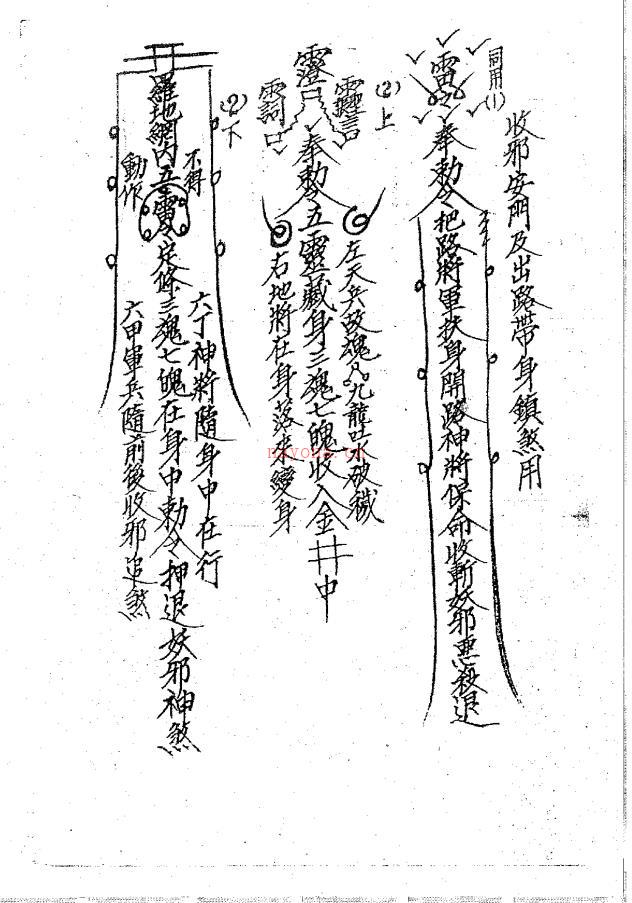 收邪安門及出路帶身鎖煞用
同用(1)
奉勅令把路將軍扶身開路神將保命收斬妖邪惡殺退
(2)上
奉勅令五靈藏身三魂七魄收入金井中
左天兵 魂 九龍吐水破穢
右地將在身落來變身
(2)下
井羅地網內五雷 定條三魂七魄在身中勅令押退妖邪神煞
不得
動作
六丁神將隨身中在行
六甲軍兵隨前後收邪追煞